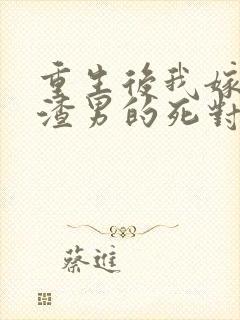 重生後我嫁
渣男的死對
蔡進